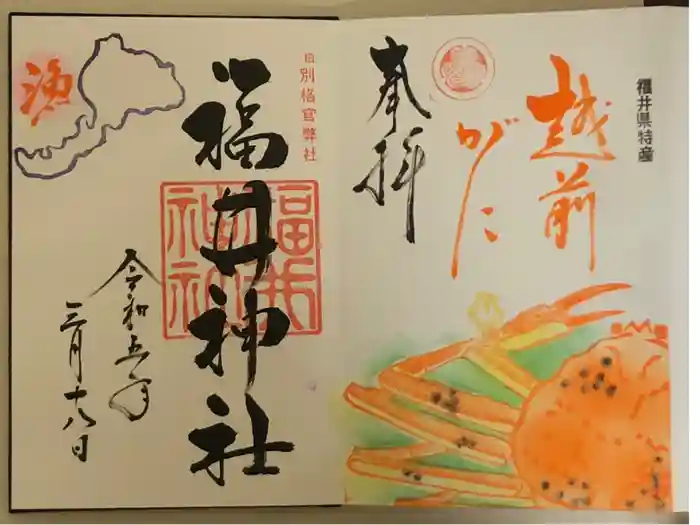 福井県特産
越前
がに
奉拝
旧別格官幣社
福井神社
福井
神社
漁
令和五年
三月十八日